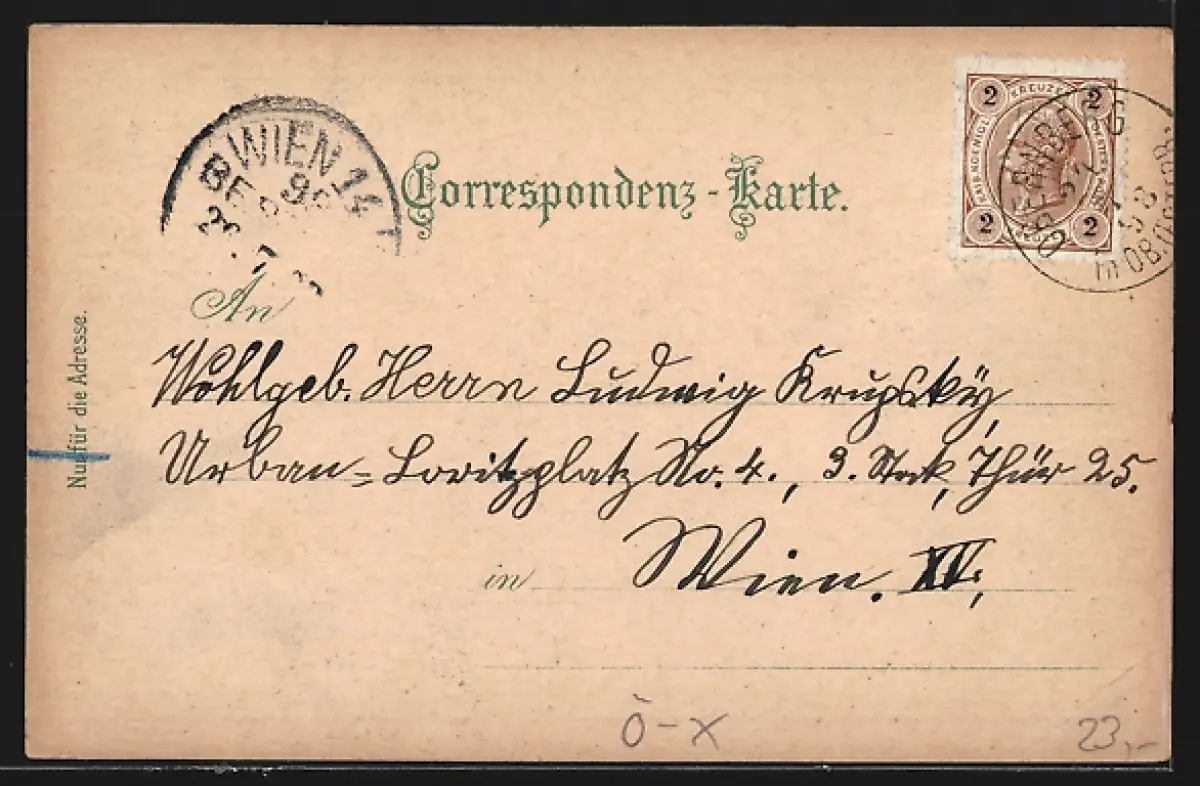 2 KREUZER 2
2 2
WIEN 14
98
Correspondenz-Karte.
An
Wohlgeb. Herrn Ludwig Krupsky,
Urban-Loritzplatz No. 4., 3. Stock, Thür 25.
in Wien. XV.,
Nur für die Adresse.
Ö-X
23,-